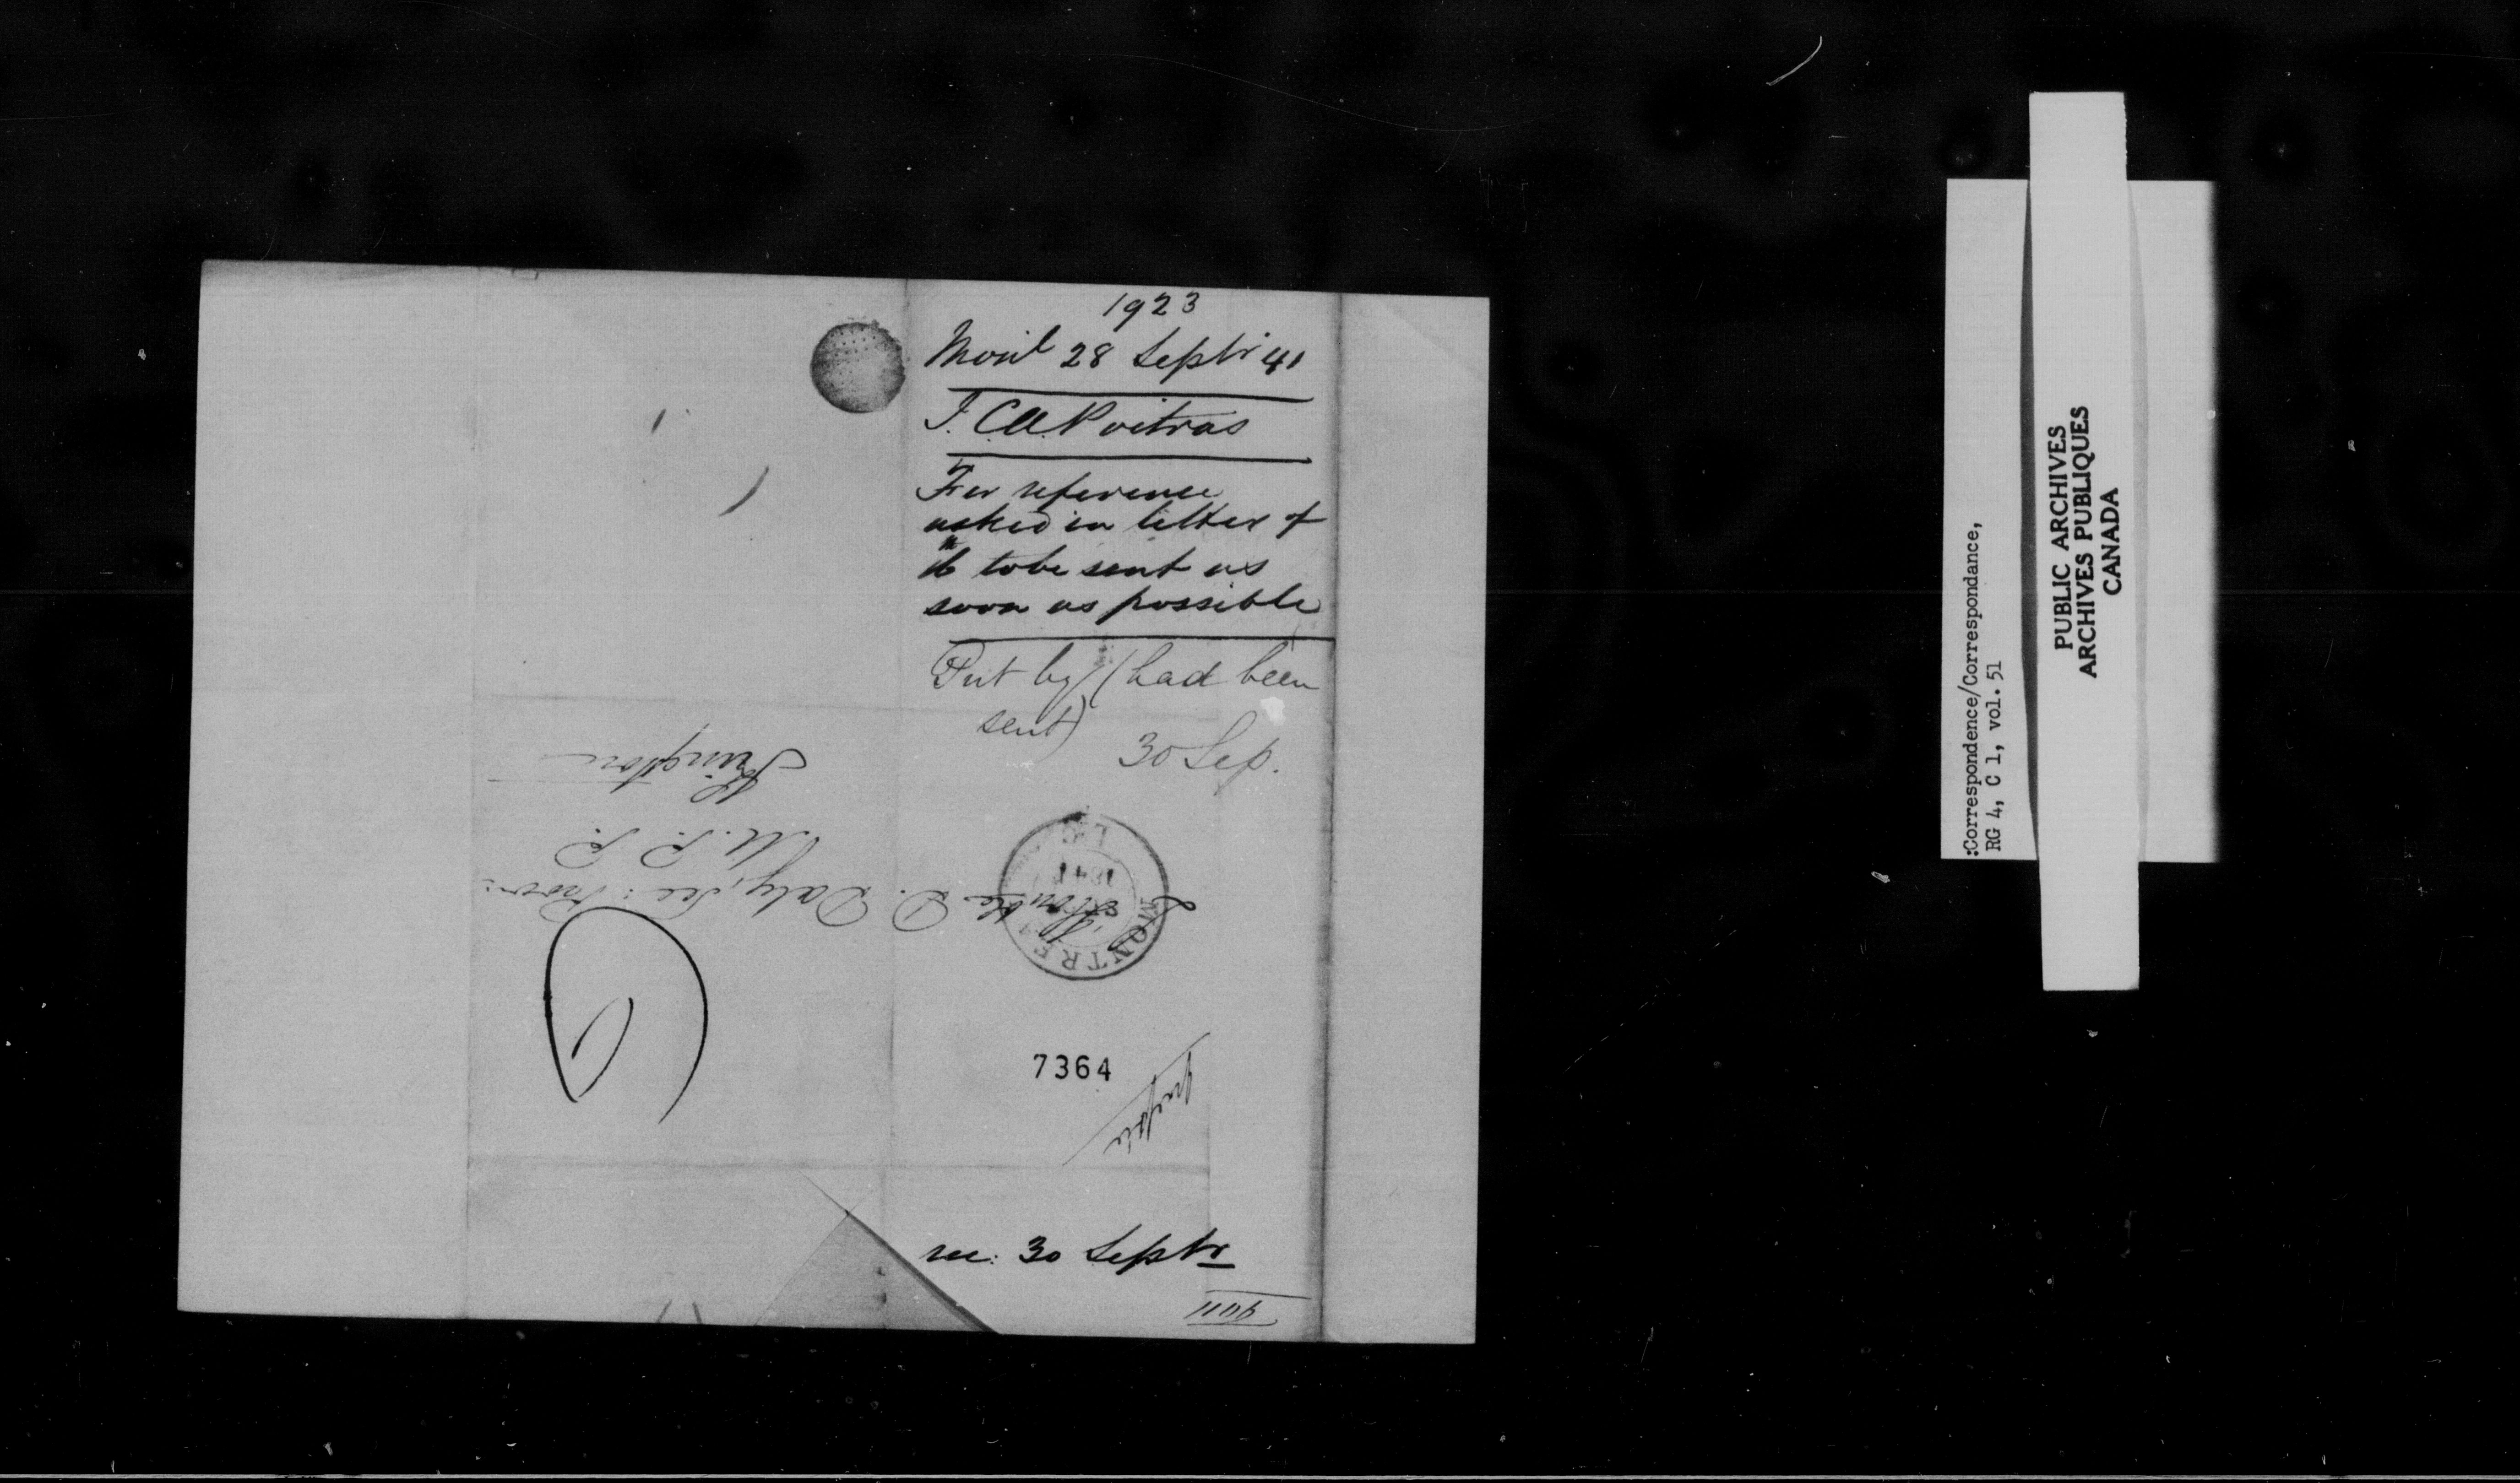 1923
Monl 28 Septr 41
F. C. A. Poitras
For reference
asked in letter of
to be sent as
soon as possible
Put by (had been
sent)
30 Sep.
L'Honble D. Daly, Sec: Prov:
M. P. P.
Kingston
MONTREAL
1841
L.C.
7364
rec: 30 Septr
:Correspondence/Correspondance,
RG 4, C 1, vol. 51
PUBLIC ARCHIVES
ARCHIVES PUBLIQUES
CANADA